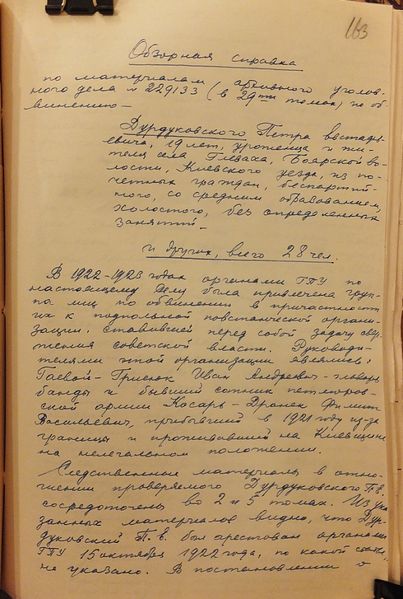 163
Обзорная справка
по материалам архивного уголов-
ного дела № 229133 (в 29ти томах) по об-
винению —
Дурдуковского Петра Евстафи-
евича, 19 лет, уроженца и жи-
теля села Глеваха, Боярской во-
лости, Киевского уезда, из по-
четных граждан, беспартий-
ного, со средним образованием,
холостого, без определенных
занятий —
и других, всего 28 чел.
В 1922-1923 годах органами ГПУ по
настоящему делу была привлечена груп-
па лиц по обвинению в причастности
их к подпольной повстанческой органи-
зации, ставившей перед собой задачу свер-
жения советской власти. Руководи-
телями этой организации являлись:
Гаевой-Грисюк Иван Андреевич - главарь
банды и бывший сотник петлюров-
ской армии Косарь-Дранек Филипп
Васильевич, прибывший в 1921 году из-за
границы и проживавший на Киевщине
на нелегальном положении.
Следственные материалы в отно-
шении проверяемого Дурдуковского П.Е.
сосредоточены во 2 и 5 томах. Из ука-
занных материалов видно, что Дур-
дуковский П.Е. был арестован органами
ГПУ 15 октября 1922 года, по какой статье,
не указано. В постановлении о